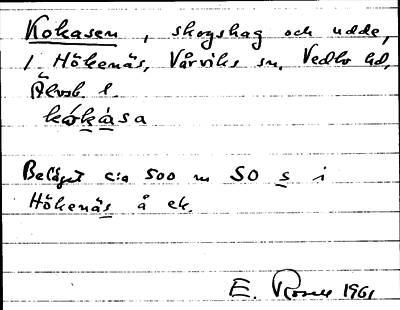 Kokasen, skogshag och udde,
i Hökenäs, Vårviks sn, Vedbo hd,
Älvsb. l.
kókàsa
Beläget c:a 500 m SO s i
Hökenäs å ek.
E. Rosell 1961